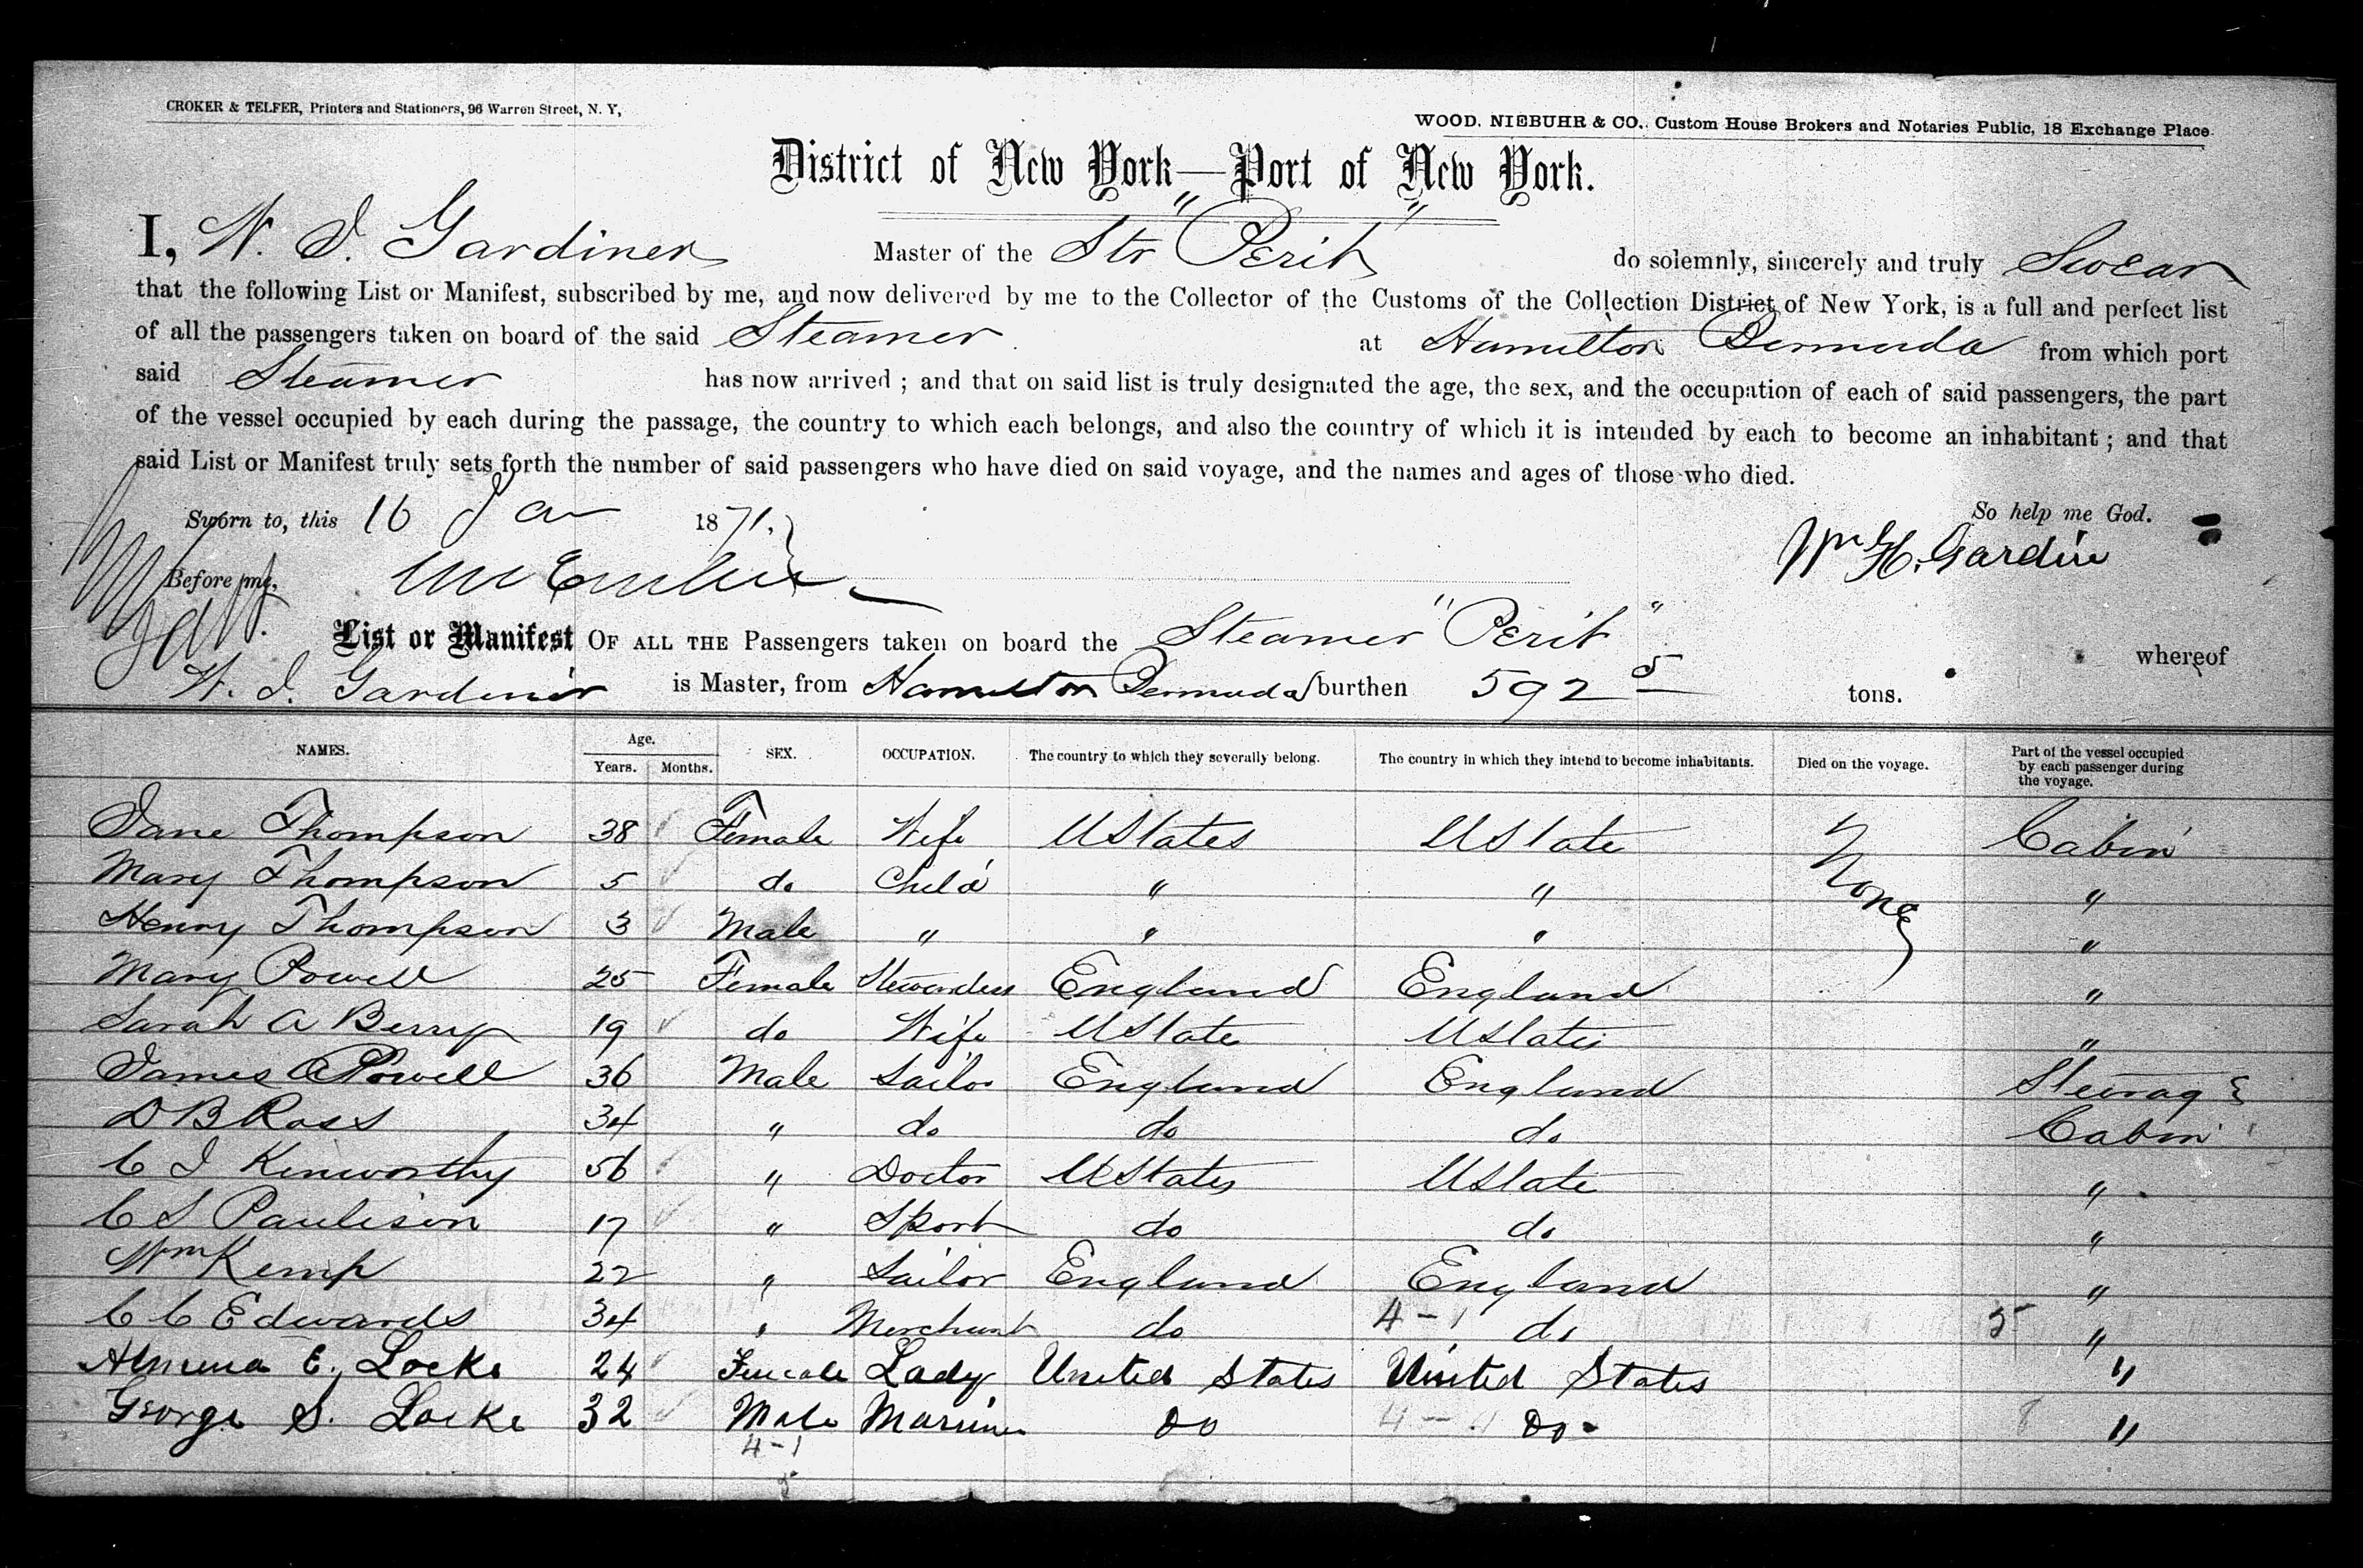 CROKER & TELFER, Printers and Stationers, 96 Warren Street, N. Y,
WOOD, NIEBUHR & CO., Custom House Brokers and Notaries Public, 18 Exchange Place.
District of New York—Port of New York.
I, W. J. Gardiner Master of the Str "Perit" do solemnly, sincerely and truly Swear
that the following List or Manifest, subscribed by me, and now delivered by me to the Collector of the Customs of the Collection District of New York, is a full and perfect list
of all the passengers taken on board of the said Steamer at Hamilton Bermuda from which port
said Steamer has now arrived ; and that on said list is truly designated the age, the sex, and the occupation of each of said passengers, the part
of the vessel occupied by each during the passage, the country to which each belongs, and also the country of which it is intended by each to become an inhabitant ; and that
said List or Manifest truly sets forth the number of said passengers who have died on said voyage, and the names and ages of those who died.
Sworn to, this 16 Jan 1871. So help me God.
Before me, Wm H. Gardin
List or Manifest OF ALL THE Passengers taken on board the Steamer "Perit" whereof
W. J. Gardiner is Master, from Hamilton Bermuda burthen 592 5 tons.
NAMES. Age. Years. Months. SEX. OCCUPATION. The country to which they severally belong. The country in which they intend to become inhabitants. Died on the voyage. Part of the vessel occupied by each passenger during the voyage.
Jane Thompson 38 Female Wife UStates UState None Cabin
Mary Thompson 5 do Child " " "
Henry Thompson 3 Male " " " "
Mary Powell 25 Female Stewardess England England "
Sarah A Berry 19 do Wife UState UState "
James Powell 36 Male Sailor England England Steerag
D B Ross 34 " do do do Cabin
C J Kenworthy 56 " Doctor UStates UState "
C S Paulison 17 " Sport do do "
Wm Kemp 22 " Sailor England England "
C C Edwards 34 " Merchant do 4-1 do 5 "
Almena E. Locke 24 Female Lady United States United States "
George S. Locke 32 Male Mariner Do Do "
4-1